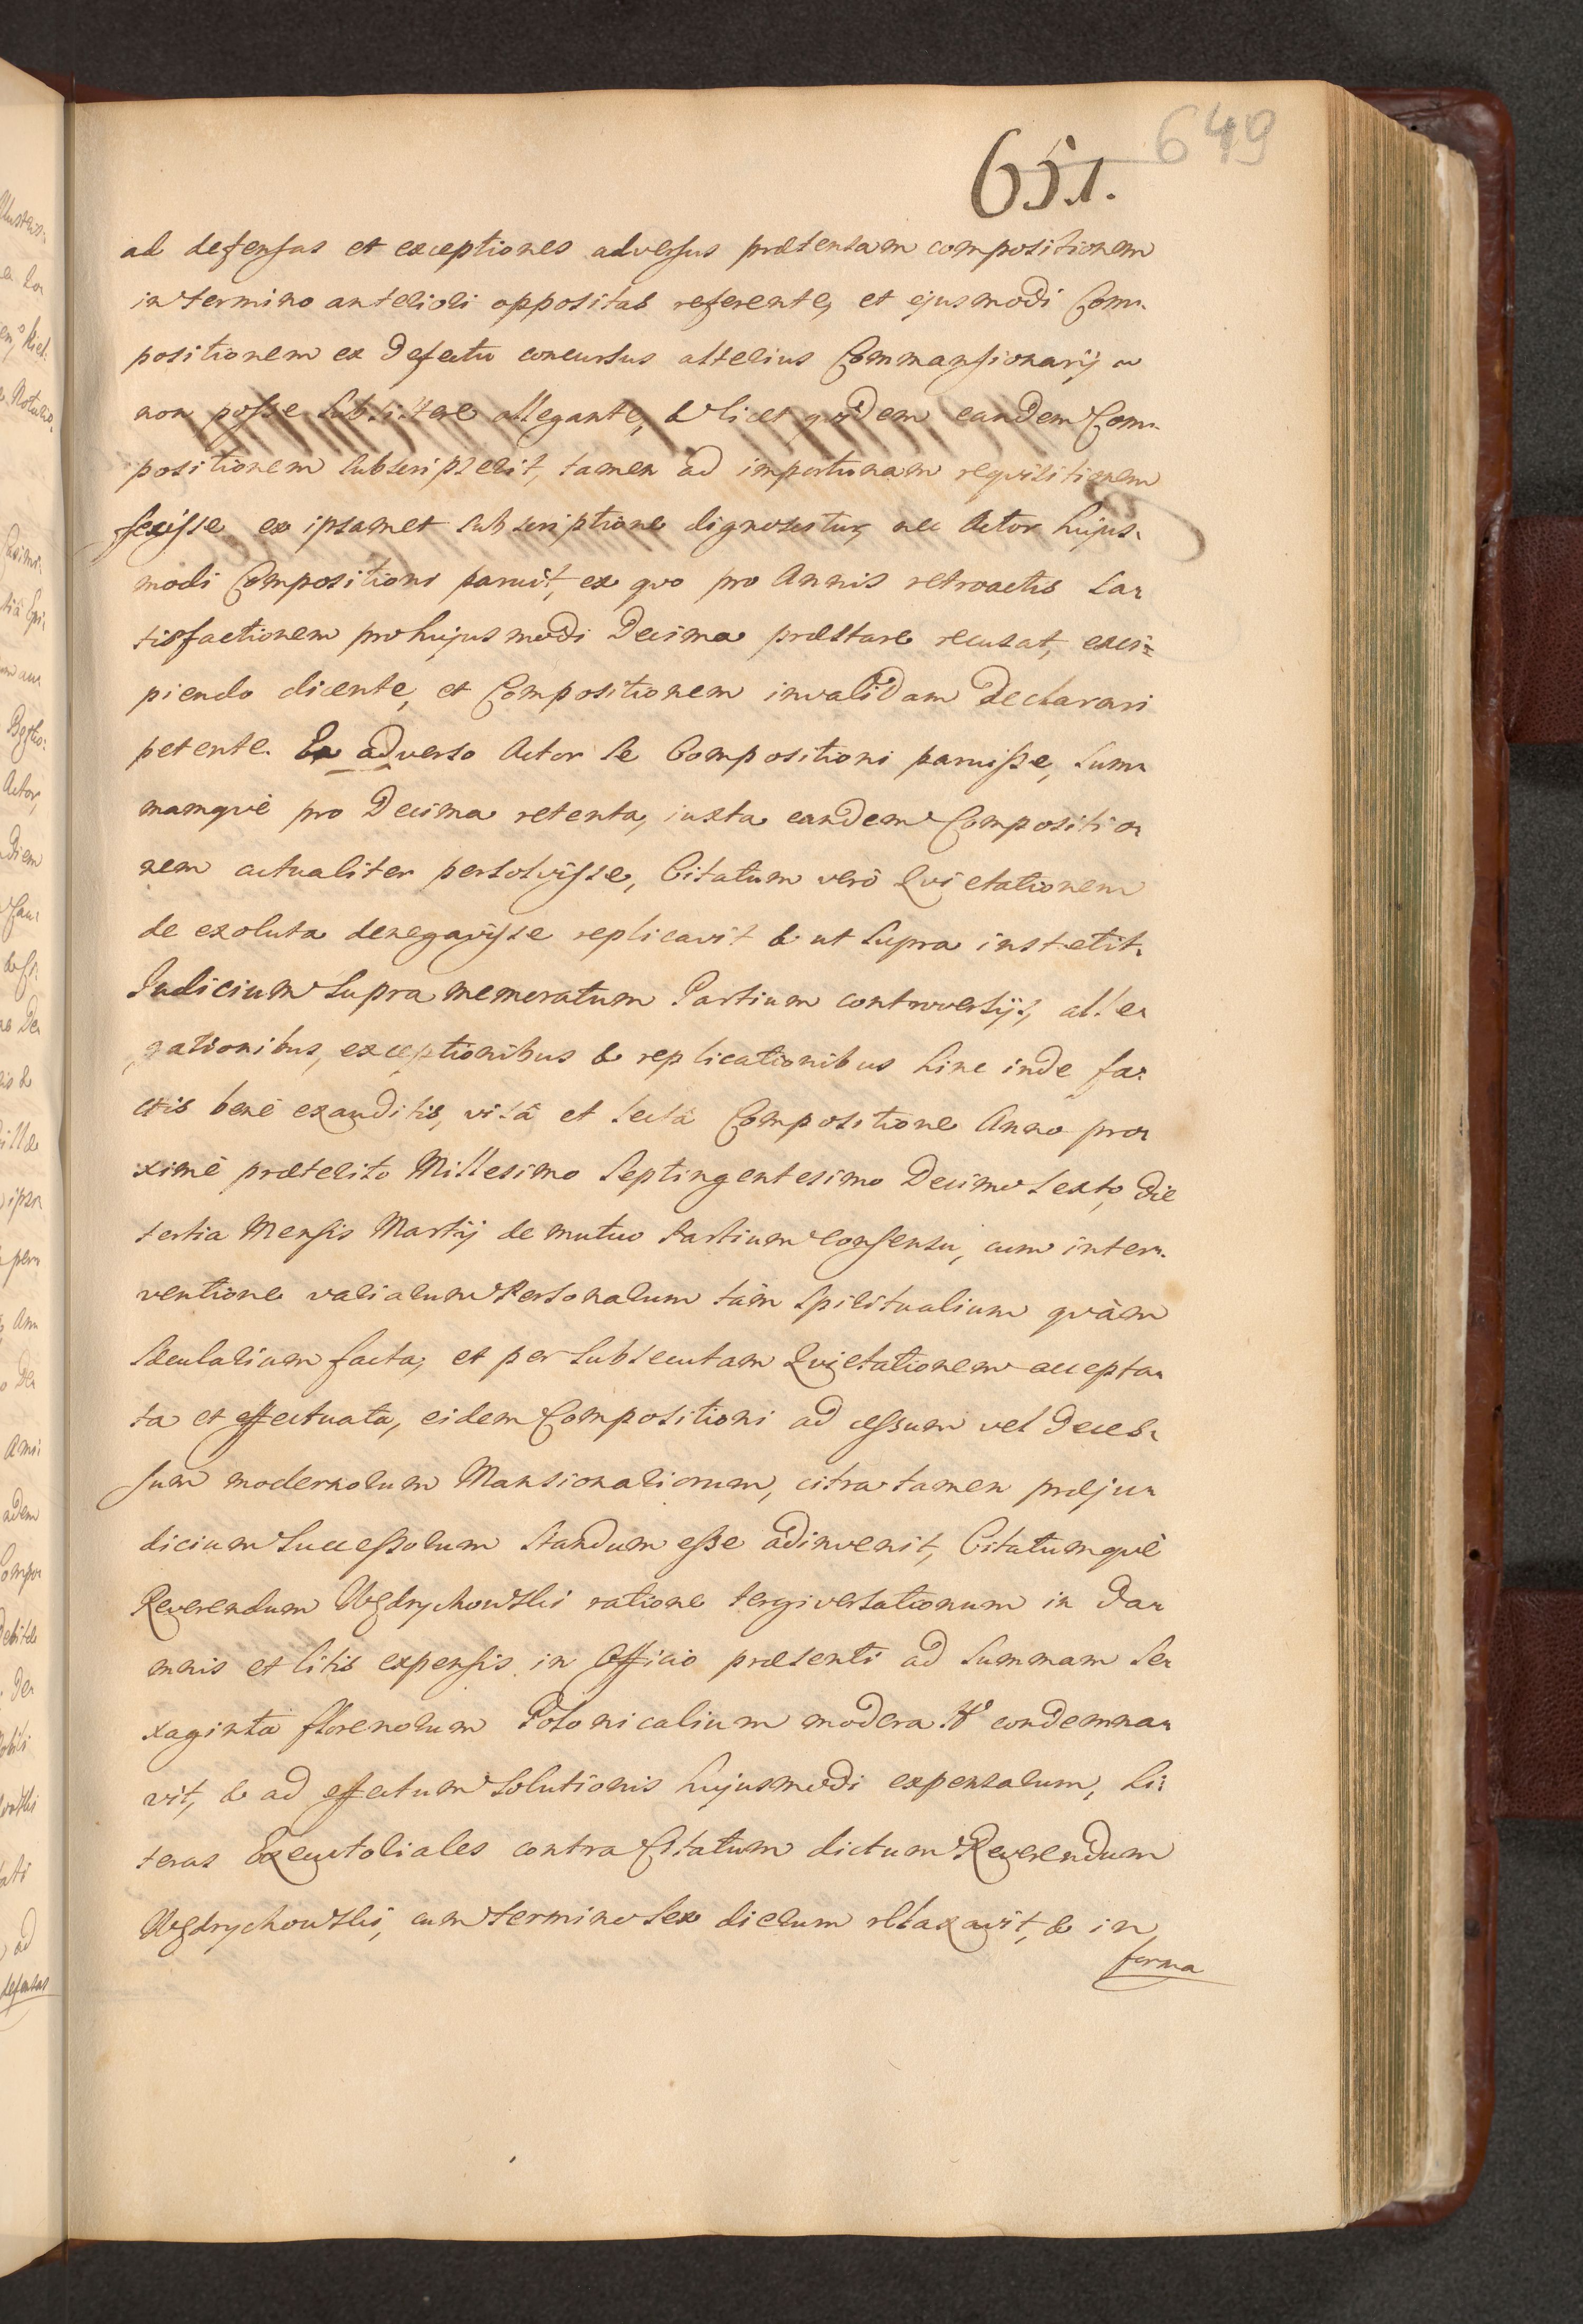 649
651.
ad defensas et exceptiones adversus prætensam compositionem
in termino anteriori oppositas referente, et ejusmodi Com-
positionem ex defectu concursus alterius Commansionarij
non posse subsistere allegante, & licet quidem eandem Com-
positionem subscripserit, tamen ad importunam requisitionem
fecisse ex ipsamet subscriptione dignoscitur, nec Actor hujus-
modi Compositioni paruit, ex quo pro Annis retroactis sa-
tisfactionem pro hujusmodi Decima præstare recusat, exci-
piendo dicente, et Compositionem invalidam declarari
petente. Ex adverso Actor se Compositioni paruisse, sum-
mamquè pro Decima retenta, iuxta eandem Compositio-
nem actualiter persolvisse, Citatum verò Quietationem
de exoluta denegavisse replicavit & ut supra institit.
Iudicium supra memoratum Partium controversijs, alle-
gationibus, exceptionibus & replicationibus hinc inde fa-
ctis benè exauditis, visâ et lectâ Compositione Anno pro-
ximè præterito Millesimo Septingentesimo Decimo Sexto, die
tertia Mensis Martij de mutuo Partium consensu, cum inter-
ventione variarum Personarum tàm Spiritualium quàm
Sæcularium facta, et per subsecutam Quietationem accepta-
ta et effectuata, eidem Compositioni ad cessum vel deces-
sum modernorum Mansionariorum, citra tamen præju-
dicium Successorum standum esse adinvenit, Citatumquè
Reverendum Wędrychowski ratione tergiversationum in da-
mnis et litis expensis in Officio præsenti ad summam se-
xaginta florenorum Polonicalium modera condemna-
vit, & ad effectum solutionis hujusmodi expensarum, Li-
teras Executoriales contra Citatum dictum Reverendum
Wędrychowski, cum termino sex dierum relaxavit, & in
forma